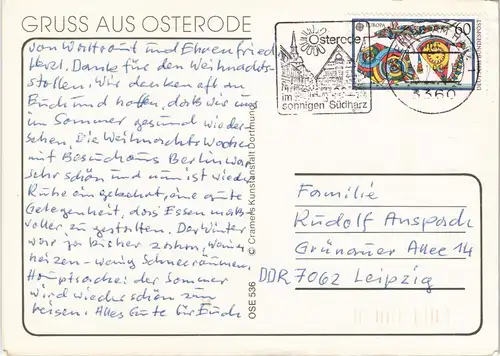 GRUSS AUS OSTERODE
von Waltraut und Ehrenfried
Herzl. Dank für den Weihnachts-
stollen. Wir denken oft an
Euch und hoffen, daß wir uns
im Sommer gesund wieder-
sehen. Die Weihnachts Woche
mit Besuch aus Berlin war
sehr schön und nun ist wieder
Ruhe eingekehrt, eine gute
Gelegenheit, das Essen maß-
voller zu gestalten. Der Winter
war ja bisher schon, wenig
heizen – wenig Schneeräumen.
Hauptsache: der Sommer
wird wieder schön zum
reisen. Alles Gute für Euch
© Cramers Kunstanstalt Dortmund
OSE 536
Osterode
im
sonnigen Südharz
EUROPA
60
DEUTSCHE BUNDESPOST
3360
Familie
Rudolf Anspach
Grünauer Allee 14
DDR 7062 Leipzig